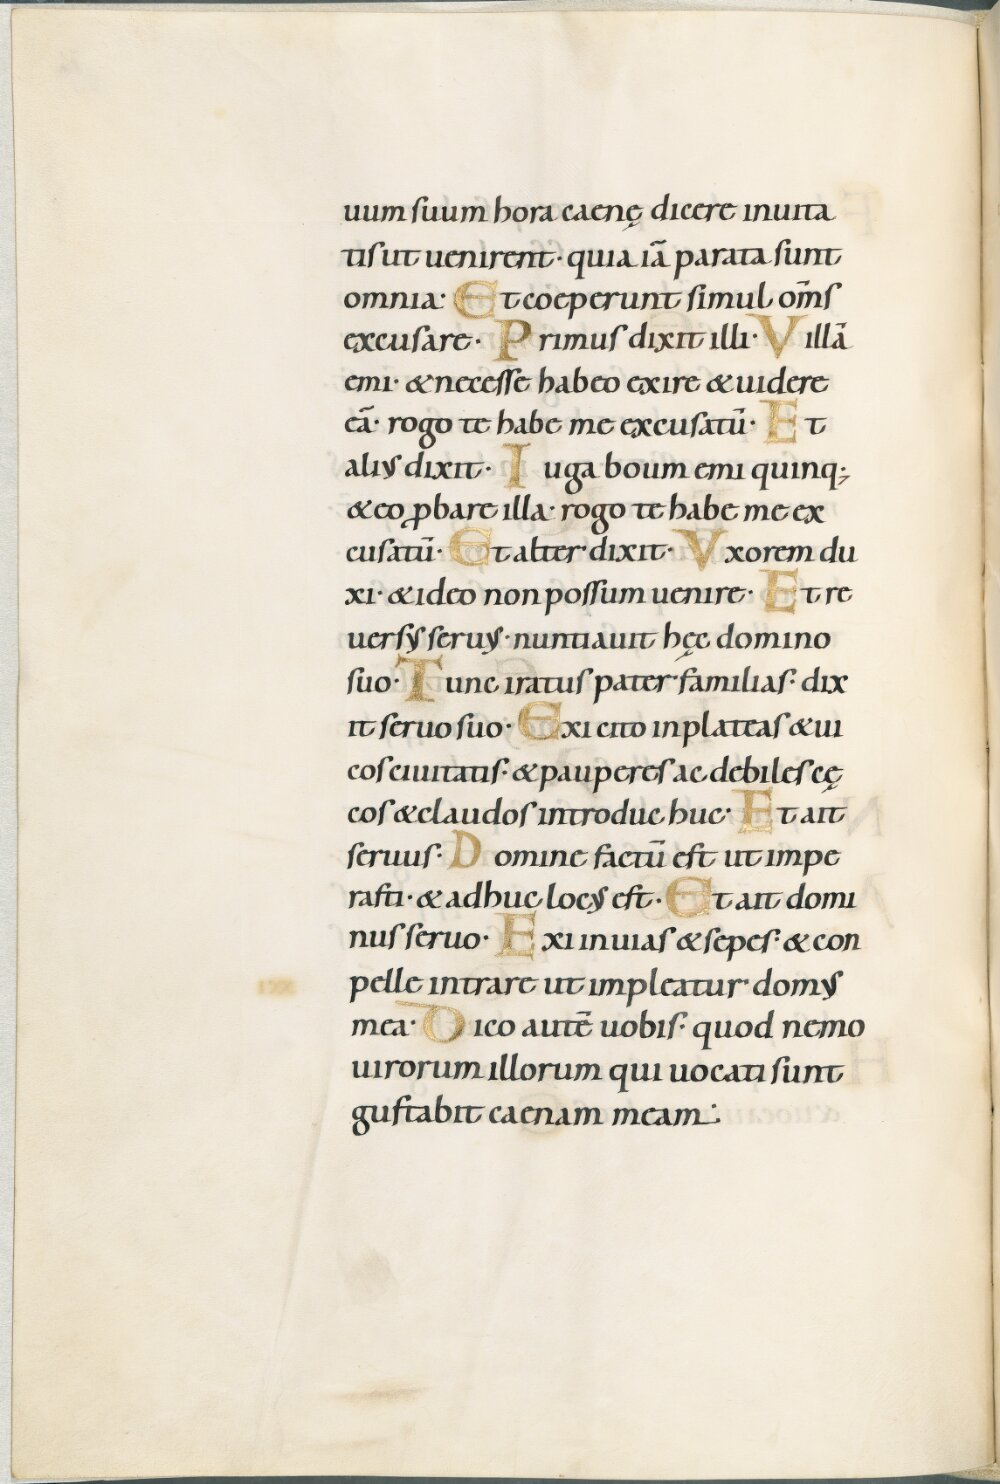 uum suum hora caenę dicere inuita
tis ut uenirent· quia iā parata sunt
omnia· Et coeperunt simul om̄s
excusare· Primus dixit illi· Villā
emi· & necesse habeo exire & uidere
eā· rogo te habe me excusatū· Et
aliꝰ dixit· Iuga boum emi quinq;
& eo ꝓbare illa· rogo te habe me ex
cusatū· Et alter dixit· Vxorem du
xi· & ideo non possum uenire· Et re
uersꝰ seruꝰ· nuntiauit hęc domino
suo· Tunc iratus pater familias· dix
it seruo suo· Exi cito in plateas & ui
cos ciuitatis· & pauperes ac debiles cę
cos & claudos introduc huc· Et ait
seruus· Domine factū est ut impe
rasti· & adhuc locꝰ est· Et ait domi
nus seruo· Exi in uias & sepes· & con
pelle intrare ut impleatur domꝰ
mea· Dico autē uobis· quod nemo
uirorum illorum qui uocati sunt
gustabit caenam meam·